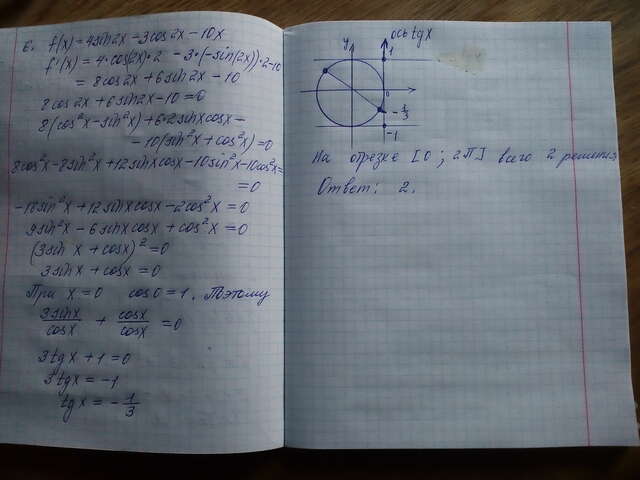 6. f(x) = 4sin2x - 3cos2x - 10x
f'(x) = 4·cos(2x)·2 - 3·(-sin(2x))·2 - 10
= 8cos2x + 6sin2x - 10
8cos2x + 6sin2x - 10 = 0
8(cos²x - sin²x) + 6·2sinxcosx -
- 10(sin²x + cos²x) = 0
8cos²x - 8sin²x + 12sinxcosx - 10sin²x - 10cos²x =
= 0
-18sin²x + 12sinxcosx - 2cos²x = 0
9sin²x - 6sinxcosx + cos²x = 0
(3sin x + cosx)² = 0
3sinx + cosx = 0
При x = 0 cos0 = 1. Поэтому
3sinx/cosx + cosx/cosx = 0
3tgx + 1 = 0
3tgx = -1
tgx = -1/3
ось tgx
y
1
0
-1/3
-1
На отрезке [0; 2П] всего 2 решения
Ответ: 2.